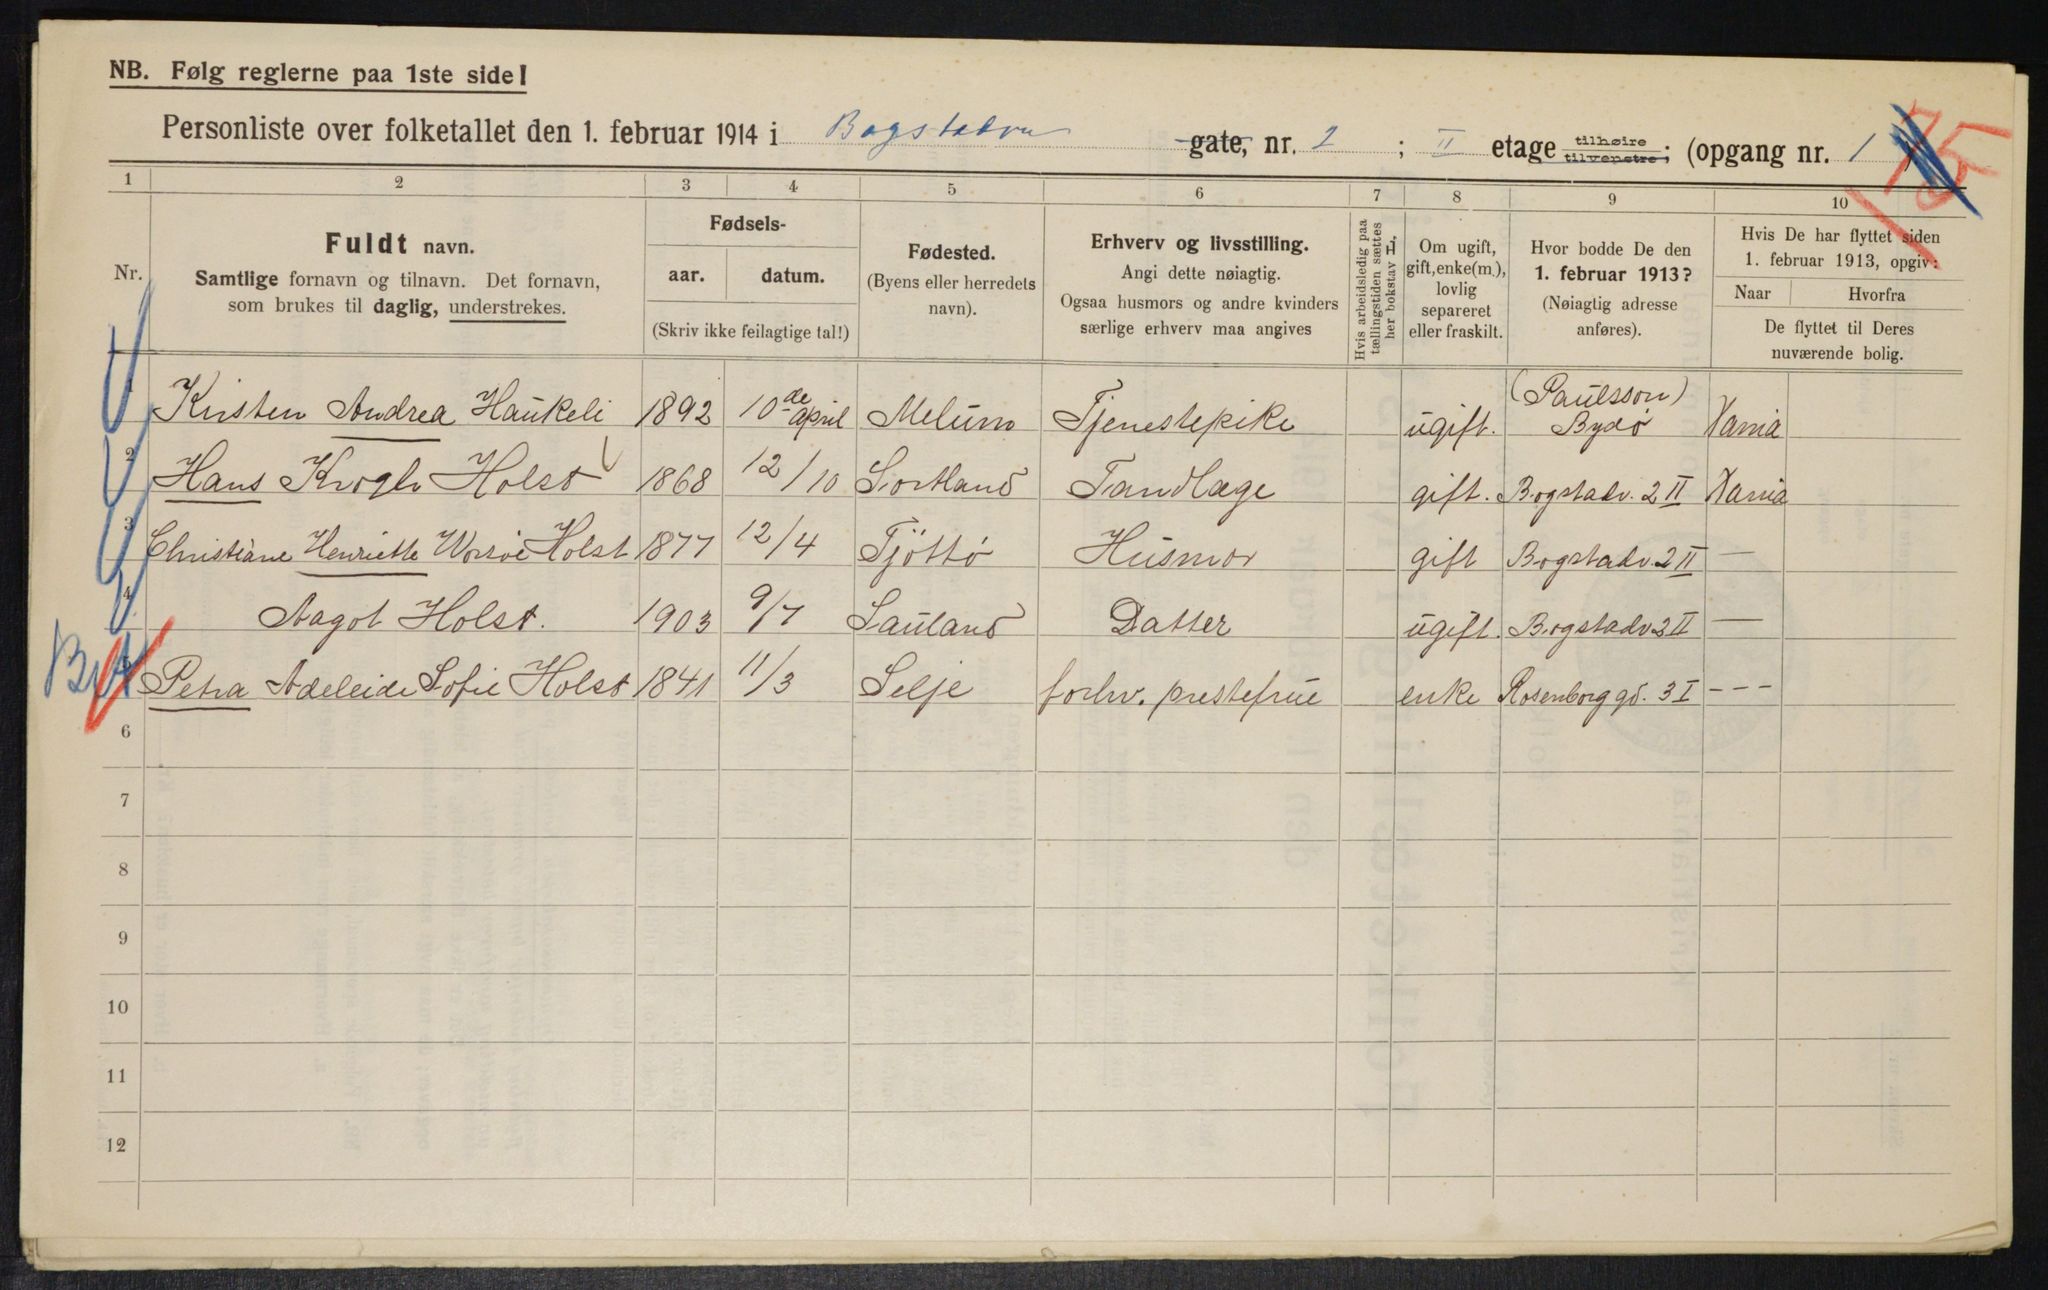 NB. Følg reglerne paa 1ste side!
Personliste over folketallet den 1. februar 1914 i Bogstadvn gate, nr. 2 ; II etage tilhøire tilvenstre; (opgang nr. 1 )
1 2 3 4 5 6 7 8 9 10
Nr.
Fuldt navn.
Samtlige fornavn og tilnavn. Det fornavn,
som brukes til daglig, understrekes.
Fødsels-
aar. datum.
(Skriv ikke feilagtige tal!)
Fødested.
(Byens eller herredets
navn).
Erhverv og livsstilling.
Angi dette nøiagtig.
Ogsaa husmors og andre kvinders
særlige erhverv maa angives
Hvis arbeidsledig paa
tællingstiden sættes
her bokstav H.
Om ugift,
gift, enke(m.),
lovlig
separeret
eller fraskilt.
Hvor bodde De den
1. februar 1913?
(Nøiagtig adresse
anføres).
Hvis De har flyttet siden
1. februar 1913, opgiv:
Naar Hvorfra
De flyttet til Deres
nuværende bolig.
1 Kirsten Andrea Haukeli 1892 10de april Melum Tjenestepike ugift. (Paulsson) Bygdø Xania
2 Hans Krogh Holst 1868 12/10 Sortland Tandlæge gift. Bogstadv. 2 II Xania
3 Christiane Henriette Worsøe Holst 1877 12/4 Tjöttö Husmor gift Bogstadv. 2 II —
4 Aagot Holst. 1903 9/7 Sauland Datter ugift. Bogstadv 2 II —
5 Petra Adeleide Sofie Holst 1841 11/3 Selje forhv. prestefrue enke Rosenborg gd. 3 I ---
6
7
8
9
10
11
12